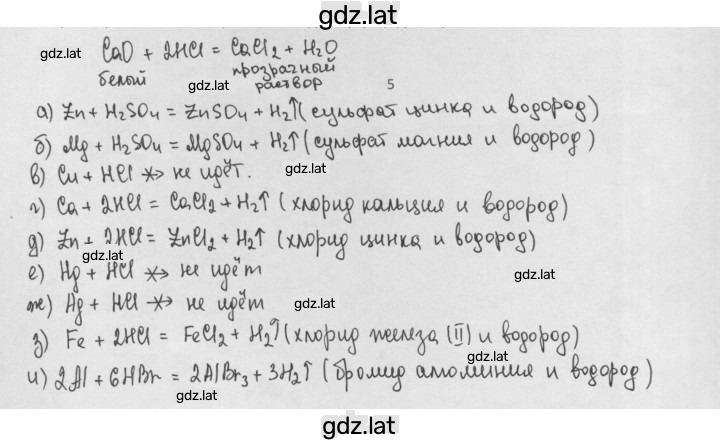 gdz.lat
gdz.lat CaO + 2HCl = CaCl2 + H2O
белый gdz.lat прозрачный раствор
5
а) Zn + H2SO4 = ZnSO4 + H2↑ (сульфат цинка и водород)
б) Mg + H2SO4 = MgSO4 + H2↑ (сульфат магния и водород)
в) Cu + HCl ↛ не идёт. gdz.lat
г) Ca + 2HCl = CaCl2 + H2↑ (хлорид кальция и водород)
д) Zn + 2HCl = ZnCl2 + H2↑ (хлорид цинка и водород)
gdz.lat
е) Hg + HCl ↛ не идёт gdz.lat
ж) Ag + HCl ↛ не идёт gdz.lat
з) Fe + 2HCl = FeCl2 + H2↑ (хлорид железа (II) и водород)
gdz.lat
и) 2Al + 6HBr = 2AlBr3 + 3H2↑ (бромид алюминия и водород)
gdz.lat
gdz.lat